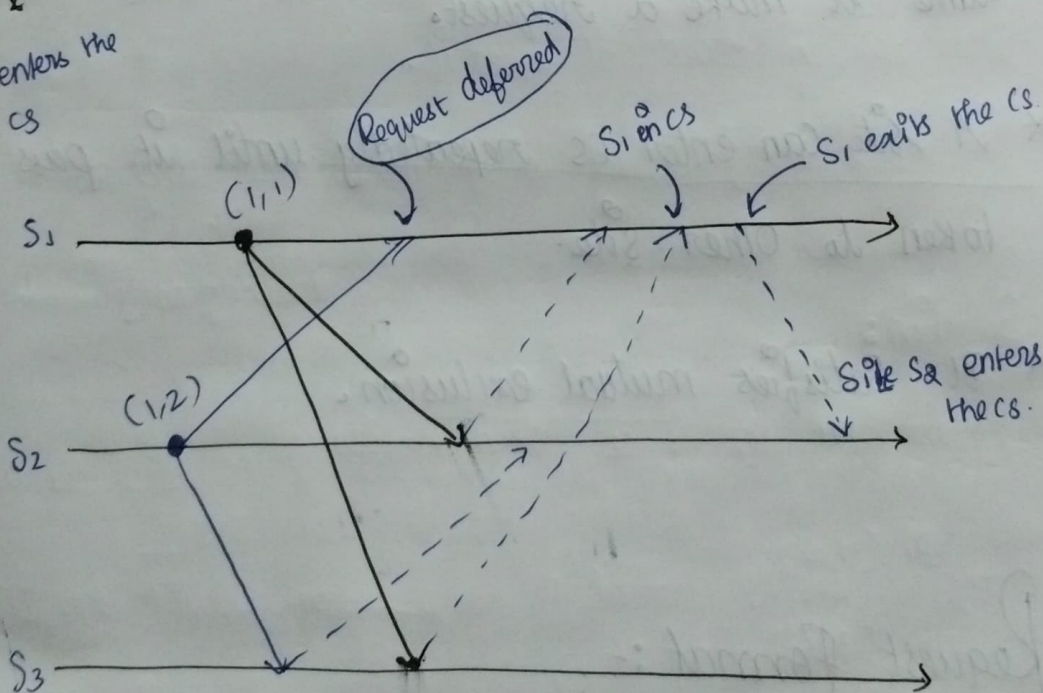 enters the
cs
Request deferred
S1 in cs
S1 exits the cs.
(1,1)
S1
(1,2)
Site S2 enters
the cs.
S2
S3